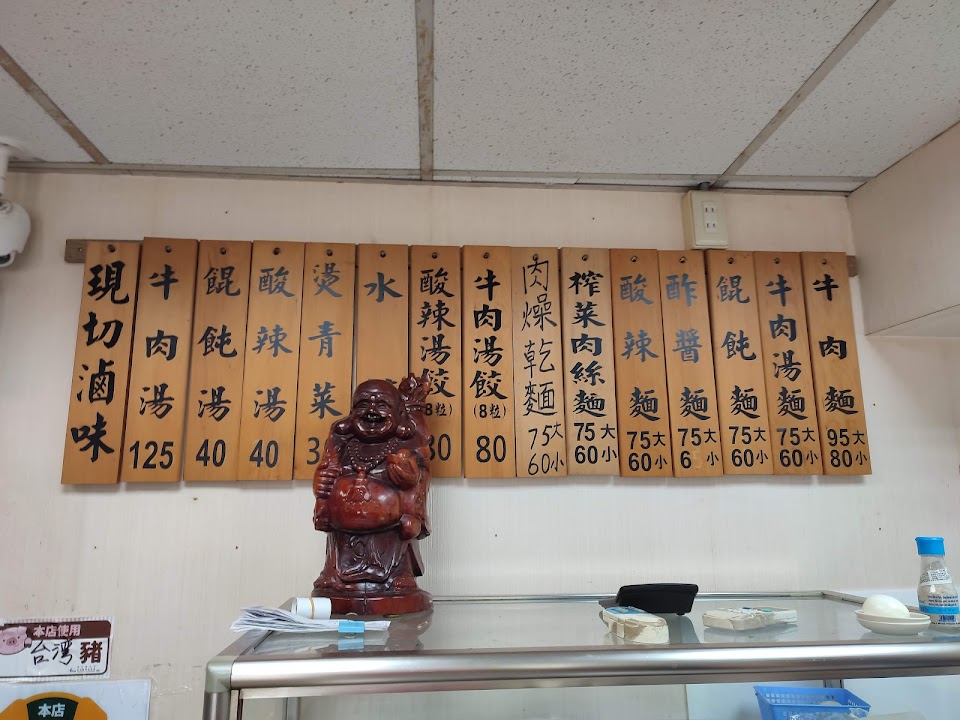 牛肉麵 95大 80小
牛肉湯麵 75大 60小
餛飩麵 75大 60小
酢醬麵 75大 6 小
酸辣麵 75大 60小
榨菜肉絲麵 75大 60小
肉燥乾麵 75大 60小
牛肉湯餃(8粒) 80
酸辣湯餃(8粒)
水
燙青菜
酸辣湯 40
餛飩湯 40
牛肉湯 125
現切滷味
本店使用
台灣豬
本店